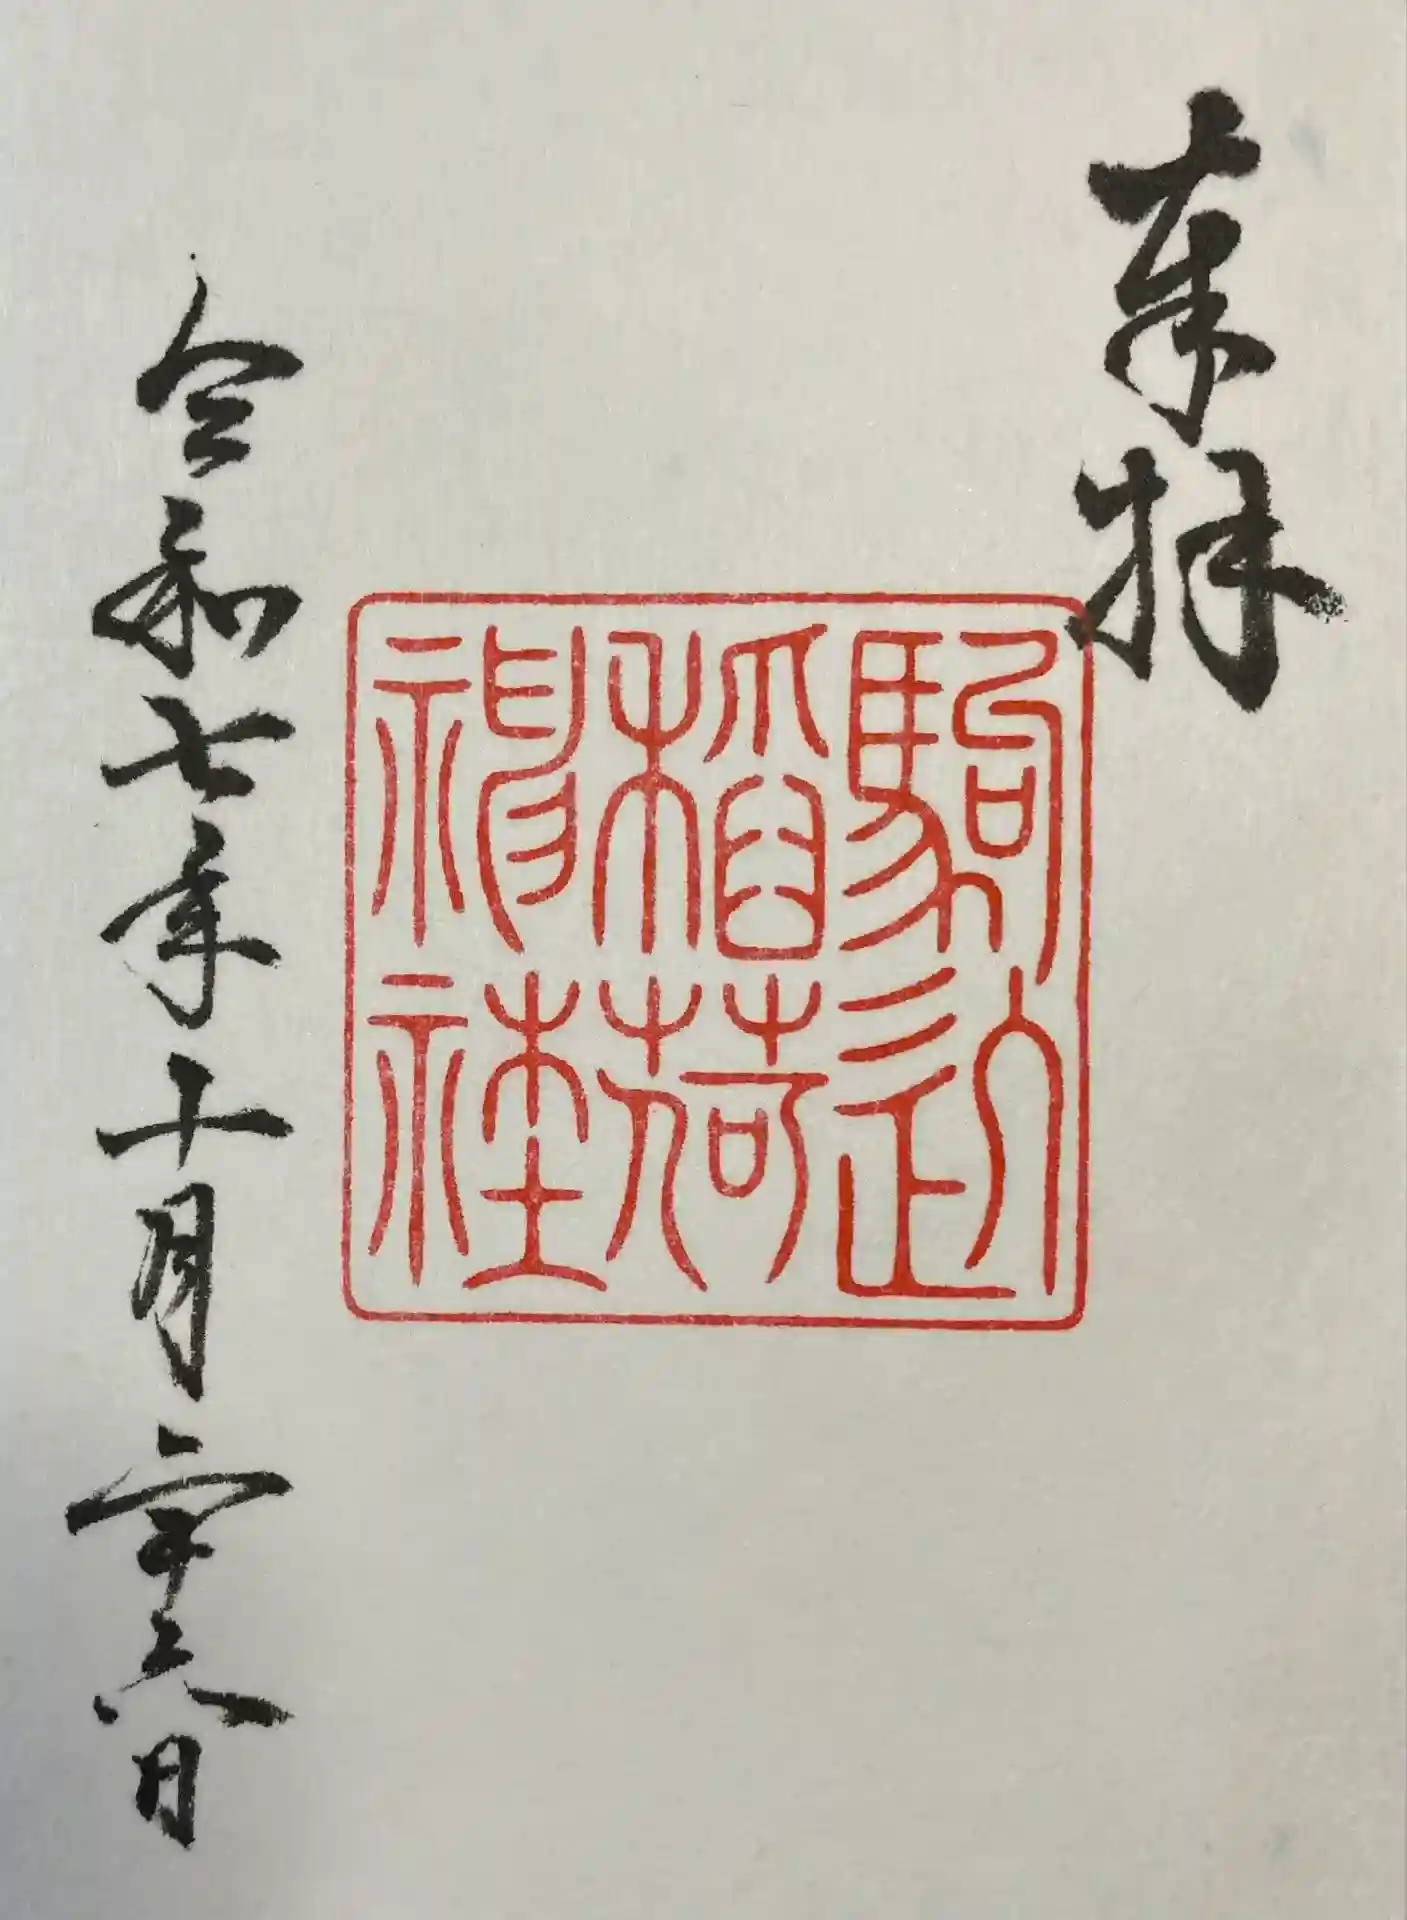 奉拝
駒込
稻荷
神社
令和七年十月二十六日